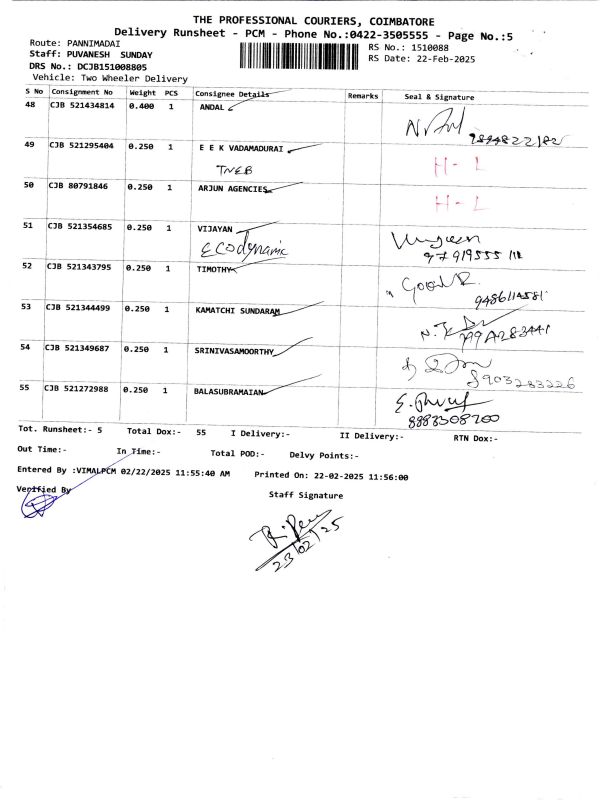 THE PROFESSIONAL COURIERS, COIMBATORE
Delivery Runsheet - PCM - Phone No.:0422-3505555 - Page No.:5
Route: PANNIMADAI
Staff: PUVANESH SUNDAY
DRS No.: DCJB151008805
Vehicle: Two Wheeler Delivery
RS No.: 1510088
RS Date: 22-Feb-2025
S No Consignment No Weight PCS Consignee Details Remarks Seal & Signature
48 CJB 521434814 0.400 1 ANDAL
49 CJB 521295404 0.250 1 E E K VADAMADURAI
TNEB H-L
50 CJB 80791846 0.250 1 ARJUN AGENCIES
H-L
51 CJB 521354685 0.250 1 VIJAYAN
Ecodynamic
52 CJB 521343795 0.250 1 TIMOTHY
53 CJB 521344499 0.250 1 KAMATCHI SUNDARAM
54 CJB 521349687 0.250 1 SRINIVASAMOORTHY
8903283226
55 CJB 521272988 0.250 1 BALASUBRAMAIAN
8883508200
Tot. Runsheet:- 5 Total Dox:- 55 I Delivery:- II Delivery:- RTN Dox:-
Out Time:- In Time:- Total POD:- Delvy Points:-
Entered By :VIMALPCM 02/22/2025 11:55:40 AM Printed On: 22-02-2025 11:56:00
Verified By
Staff Signature
23/02/25